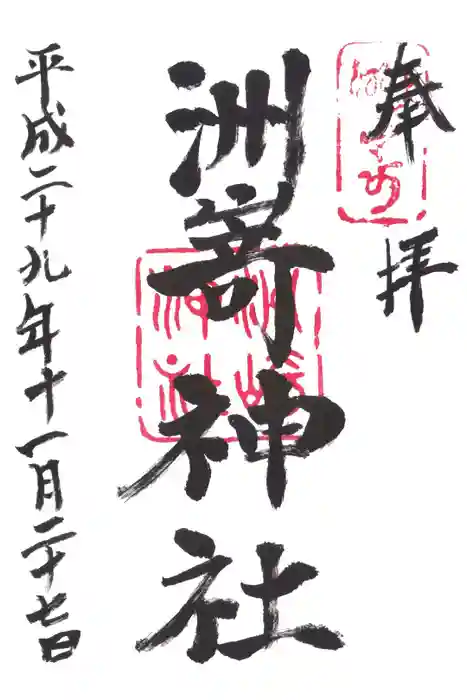 奉拝
洲嵜神社
平成二十九年十一月二十七日